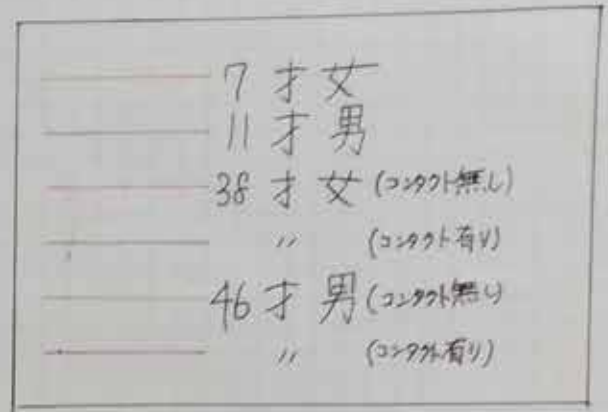 7才女
11才男
38才女(コンタクト無し)
〃 (コンタクト有り)
46才男(コンタクト無し)
〃 (コンタクト有り)